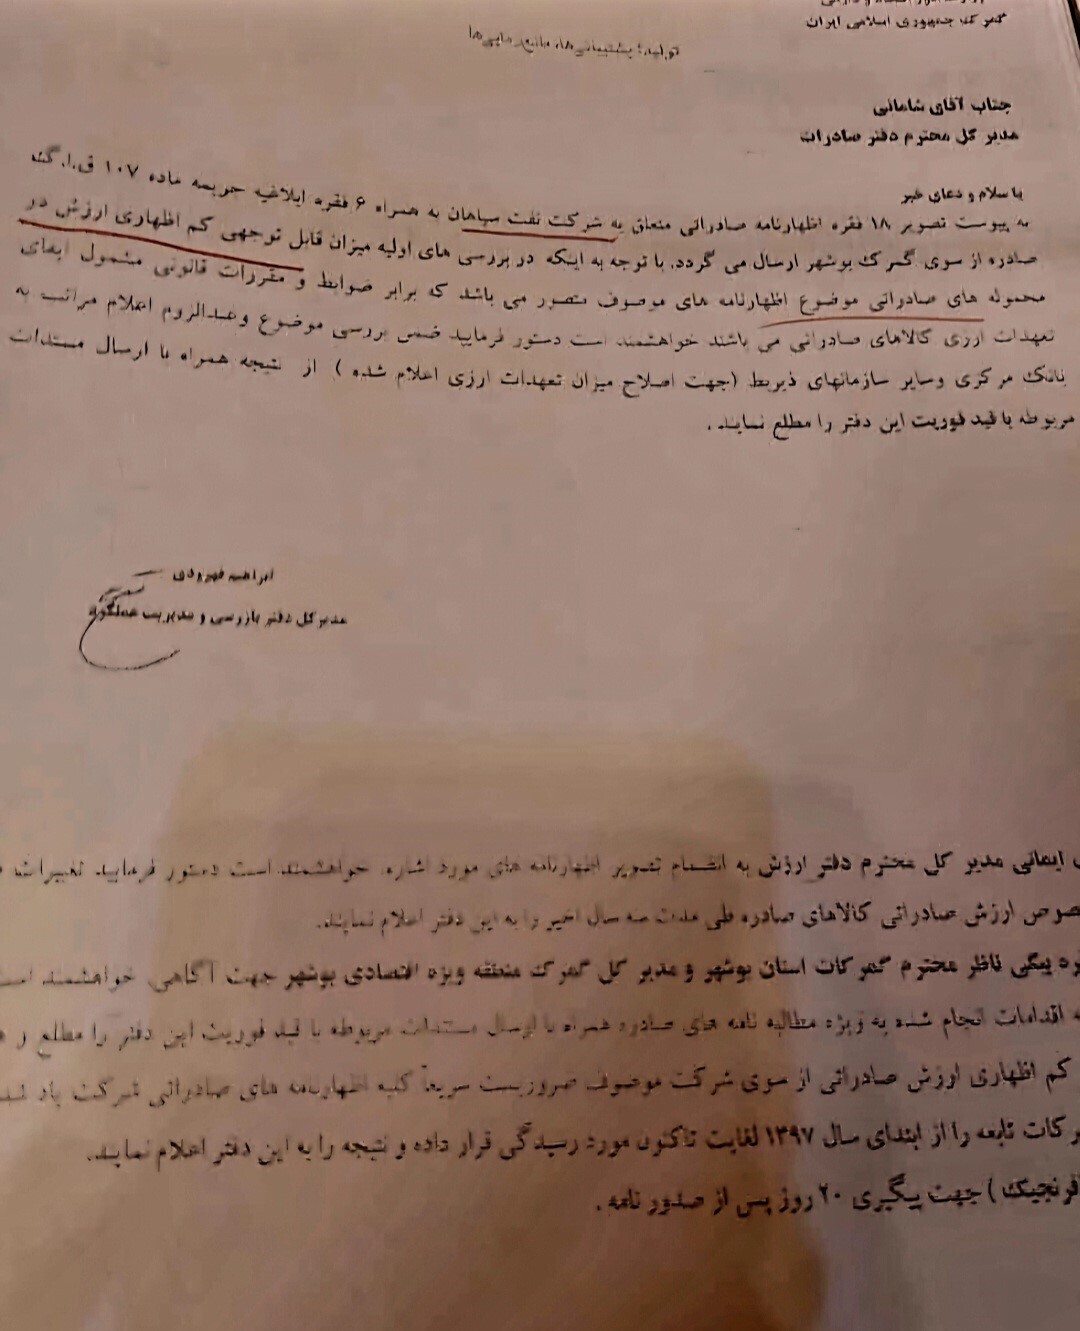 گمرک جمهوری اسلامی ایران
تولید؛ پشتیبانی‌ها، مانع‌زدایی‌ها
جناب آقای شامانی
مدیر کل محترم دفتر صادرات
با سلام و دعای خیر
به پیوست تصویر ۱۸ فقره اظهارنامه صادراتی متعلق به شرکت نفت سپاهان به همراه ۶ فقره ابلاغیه جریمه ماده ۱۰۷ ق.ا.گ
صادره از سوی گمرک بوشهر ارسال می گردد. با توجه به اینکه در بررسی های اولیه میزان قابل توجهی کم اظهاری ارزش در
محموله های صادراتی موضوع اظهارنامه های موصوف متصور می باشد که برابر ضوابط و مقررات قانونی مشمول ایفای
تعهدات ارزی کالاهای صادراتی می باشند خواهشمند است دستور فرمایید ضمن بررسی موضوع و عندالزوم اعلام مراتب به
بانک مرکزی وسایر سازمانهای ذیربط (جهت اصلاح میزان تعهدات ارزی اعلام شده ) از نتیجه همراه با ارسال مستندات
مربوطه با قید فوریت این دفتر را مطلع نمایند .
ابراهیم
مدیر کل دفتر بازرسی و مدیریت عملکرد
ایمانی مدیر کل محترم دفتر ارزش به انضمام تصویر اظهارنامه های مورد اشاره. خواهشمند است دستور فرمایید تغییرات
ارزش صادراتی کالاهای صادره طی مدت سه سال اخیر را به این دفتر اعلام نمایند.
بیگی ناظر محترم گمرکات استان بوشهر و مدیر کل گمرک منطقه ویژه اقتصادی بوشهر جهت آگاهی. خواهشمند است
اقدامات انجام شده به ویژه مطالبه نامه های صادره همراه با ارسال مستندات مربوطه با قید فوریت این دفتر را مطلع و
کم اظهاری ارزش صادراتی از سوی شرکت موصوف ضروریست سریعاً کلیه اظهارنامه های صادراتی شرکت یاد شده
تابعه را از ابتدای سال ۱۳۹۷ لغایت تاکنون مورد رسیدگی قرار داده و نتیجه را به این دفتر اعلام نمایند.
) جهت پیگیری ۲۰ روز پس از صدور نامه .